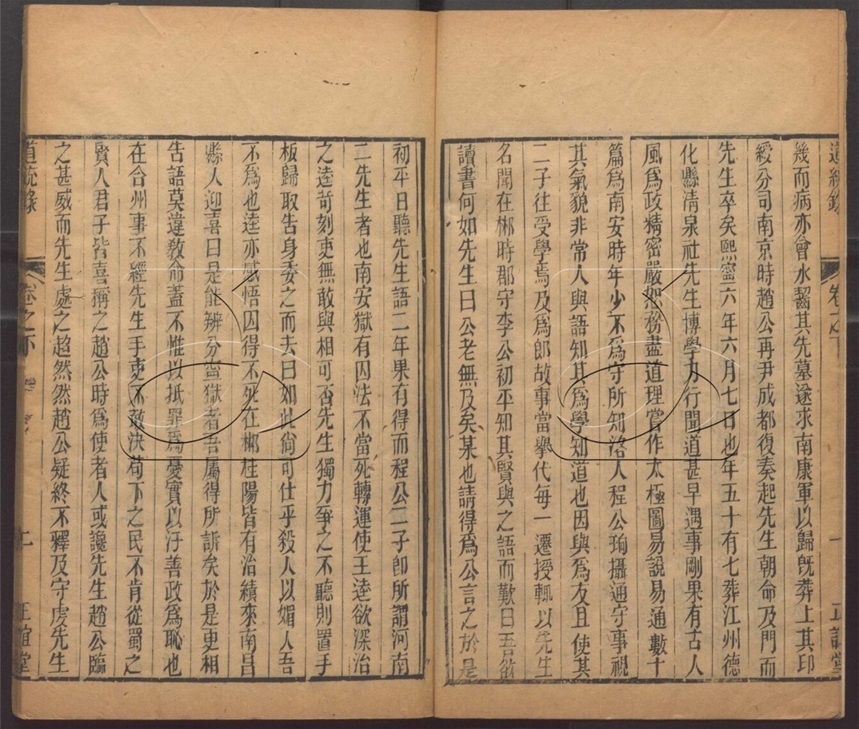 道統錄 卷之下 一 正誼堂
幾而病亦會水齧其先墓遂求南康軍以歸旣葬上其印
綬分司南京時趙公再尹成都復奏起先生朝命及門而
先生卒矣熙寧六年六月七日也年五十有七葬江州德
化縣淸泉社先生博學力行聞道甚早遇事剛果有古人
風爲政精密嚴恕務盡道理嘗作太極圖易說易通數十
篇爲南安時年少不爲守所知洛人程公珦攝通守事視
其氣貌非常人與語知其爲學知道也因與爲友且使其
二子往受學焉及爲郎故事當舉代每一遷授輒以先生
名聞在郴時郡守李公初平知其賢與之語而歎曰吾欲
讀書何如先生曰公老無及矣某也請得爲公言之於是
初平日聽先生語二年果有得而程公二子卽所謂河南
二先生者也南安獄有囚法不當死轉運使王逵欲深治
之逵苛刻吏無敢與相可否先生獨力爭之不聽則置手
板歸取告身委之而去曰如此尙可仕乎殺人以媚人吾
不爲也逵亦感悟囚得不死在郴桂陽皆有治績來南昌
縣人迎喜曰是能辨分寧獄者吾屬得所訴矣於是更相
告語莫違敎命蓋不惟以抵罪爲憂實以汙善政爲恥也
在合州事不經先生手吏不敢決苟下之民不肯從蜀之
賢人君子皆喜稱之趙公時爲使者人或讒先生趙公臨
之甚威而先生處之超然然趙公疑終不釋及守虔先生
道統錄 卷之下 二 正誼堂